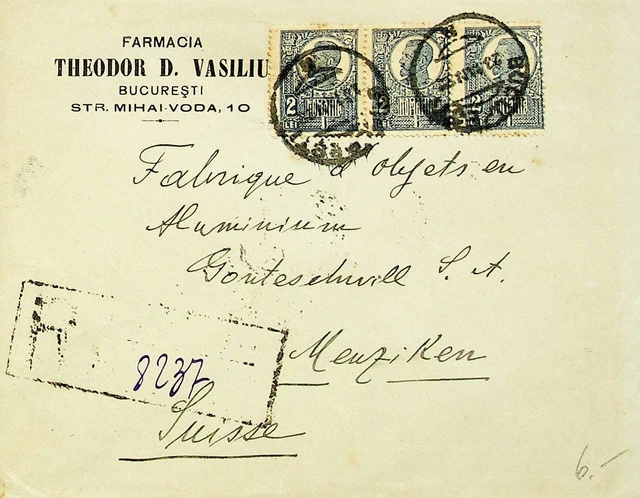 FARMACIA
THEODOR D. VASILIU
BUCUREȘTI
STR. MIHAI-VODA, 10
2
LEI
ROMANIA
2
Fabrique d'objets en
Aluminium
Gonteschwill S. A.
Menziken
Suisse
R
8237
6.-